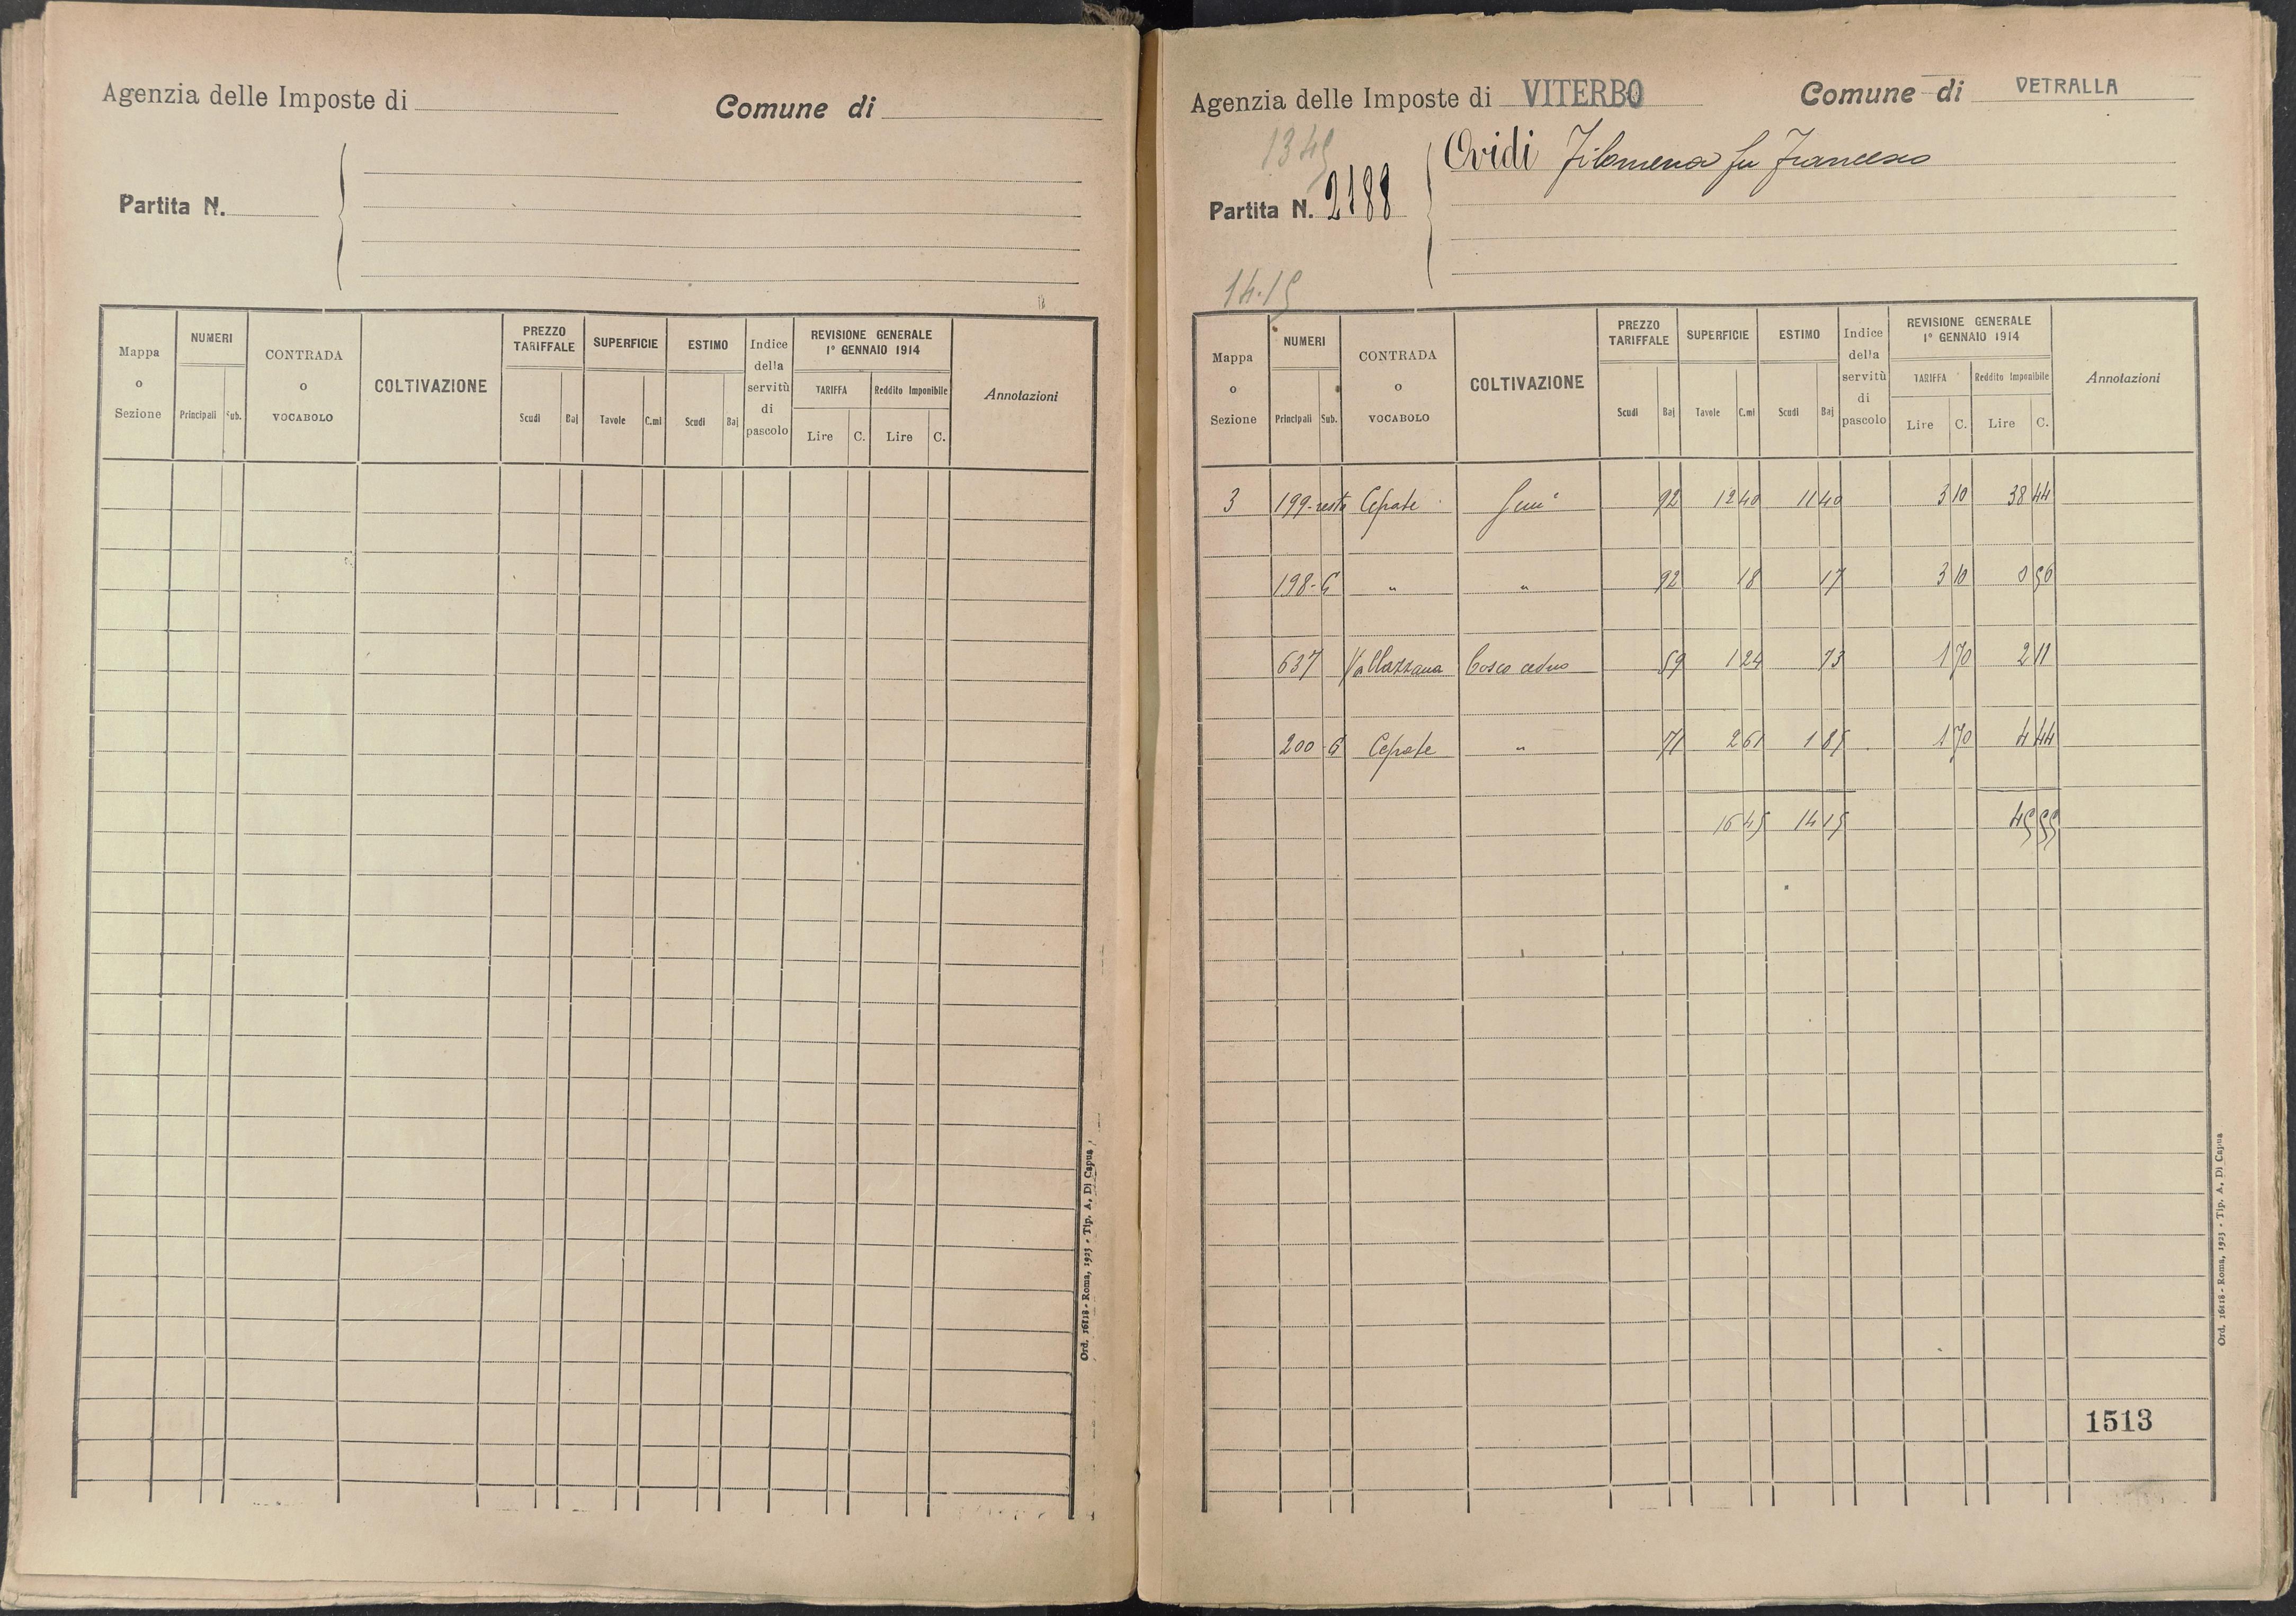 Agenzia delle Imposte di
Comune di
Partita N.
Mappa o Sezione
NUMERI
Principali Sub.
CONTRADA o VOCABOLO
COLTIVAZIONE
PREZZO TARIFFALE
Scudi Baj
SUPERFICIE
Tavole C.mi
ESTIMO
Scudi Baj
Indice della servitù di pascolo
REVISIONE GENERALE
1° GENNAIO 1914
TARIFFA Reddito Imponibile
Lire C. Lire C.
Annotazioni
Ord. 16118 - Roma, 1923 - Tip. A. Di Capua
Agenzia delle Imposte di VITERBO
Comune di VETRALLA
1345
Partita N. 2188
Ovidi Filomena fu Francesco
14.15
Mappa o Sezione
NUMERI
Principali Sub.
CONTRADA o VOCABOLO
COLTIVAZIONE
PREZZO TARIFFALE
Scudi Baj
SUPERFICIE
Tavole C.mi
ESTIMO
Scudi Baj
Indice della servitù di pascolo
REVISIONE GENERALE
1° GENNAIO 1914
TARIFFA Reddito Imponibile
Lire C. Lire C.
Annotazioni
3 199-resto 92 12 40 11 40 3 10 38 44
198-6 " " 92 18 17 3 10 0 56
637 Vallazzana Bosco ceduo 59 1 24 73 1 70 2 11
200-6 " 71 2 61 1 85 1 70 4 44
16 45 14 15 45 55
1513
Ord. 16118 - Roma, 1923 - Tip. A. Di Capua